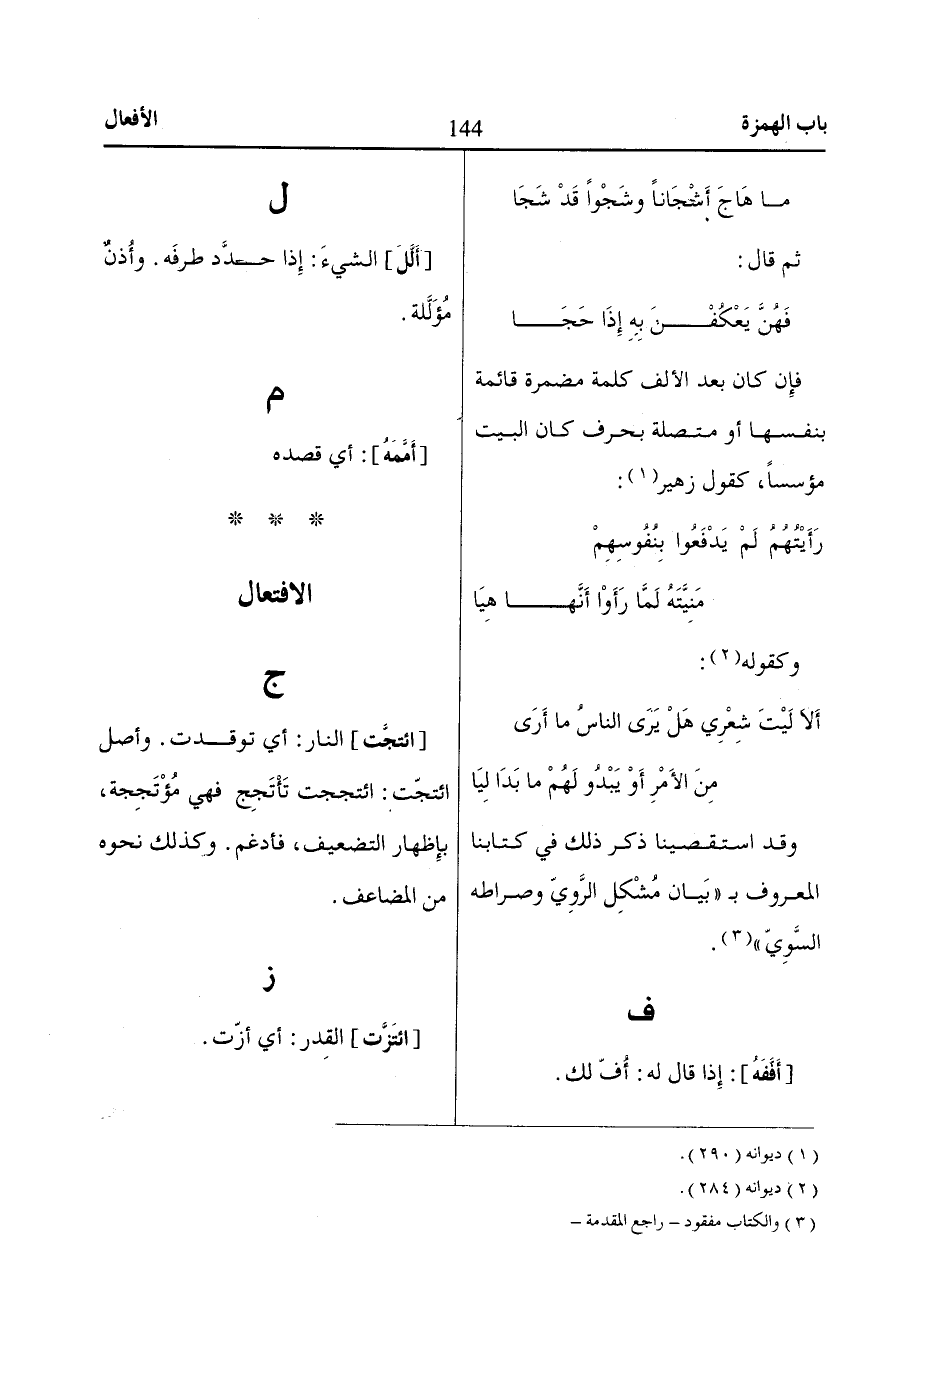 باب الهمزة
144
الأفعال
مـا هَاجَ أَشْجَاناً وشَجْواً قَدْ شَجَا
ثم قال:
فَهُنَّ يَعْكُفْـنَ بِهِ إِذَا حَجَـا
فإن كان بعد الألف كلمة مضمرة قائمة
بنفسها أو متصلة بحرف كان البيت
مؤسساً، كقول زهير(١):
رَأَيْتُهُمُ لَمْ يَدْفَعُوا بِنُفُوسِهِمْ
مَنِيَّتَهُ لَمَّا رَأَوْا أَنَّهـا هِيَا
وكقوله(٢):
أَلاَ لَيْتَ شِعْرِي هَلْ يَرَى الناسُ ما أَرَى
مِنَ الأَمْرِ أَوْ يَبْدُو لَهُمْ ما بَدَا لِيَا
وقد استقصينا ذكر ذلك في كتابنا
المعروف بـ «بَيـان مُشْكِل الرَّويّ وصراطه
السَّوِيّ»(٣).
ف
[أَفَّفَهُ]: إِذا قال له: أُفّ لك.
ل
[أَلَّلَ] الشيءَ: إِذا حـدَّد طرفَه. وأُذنٌ
مُؤَلَّلة.
م
[أَمَّمَهُ]: أي قصده
* * *
الافتعال
ج
[ائتجَّت] النار: أي توقـدت. وأصل
ائتجّت: ائتججت تَأْتَجج فهي مُؤْتَججة،
بإِظهار التضعيف، فأدغم. وكذلك نحوه
من المضاعف.
ز
[ائتَزَّت] القِدر: أي أزّت.
(١) ديوانه (٢٩٠).
(٢) ديوانه (٢٨٤).
(٣) والكتاب مفقود – راجع المقدمة –